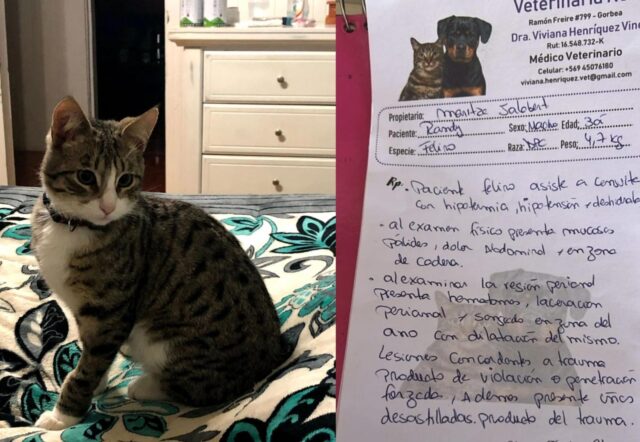 Veterinaria
Ramón Freire #799 - Gorbea
Dra. Viviana Henríquez
Rut: 16.548.732-K
Médico Veterinario
Celular: +569 45076180
viviana.henriquez.vet@gmail.com
Propietario: Maritza Jalabert
Paciente: Randy Sexo: Macho Edad: 3a
Especie: Felino Raza: DPC Peso: 4,7 kg
Rp. Paciente felino asiste a consulta
con hipotermia, hipotensión + deshidrata
- al examen físico presenta mucosas
pálidas, dolor Abdominal + en zona
de cadera.
- al examinar la región perianal
presenta hematomas, laceración
perianal + sangrado en zona del
ano con dilatación del mismo.
Lesiones concordantes a trauma
producto de violación o penetración
forzada, Ademas presenta uñas
desastilladas producto del trauma.